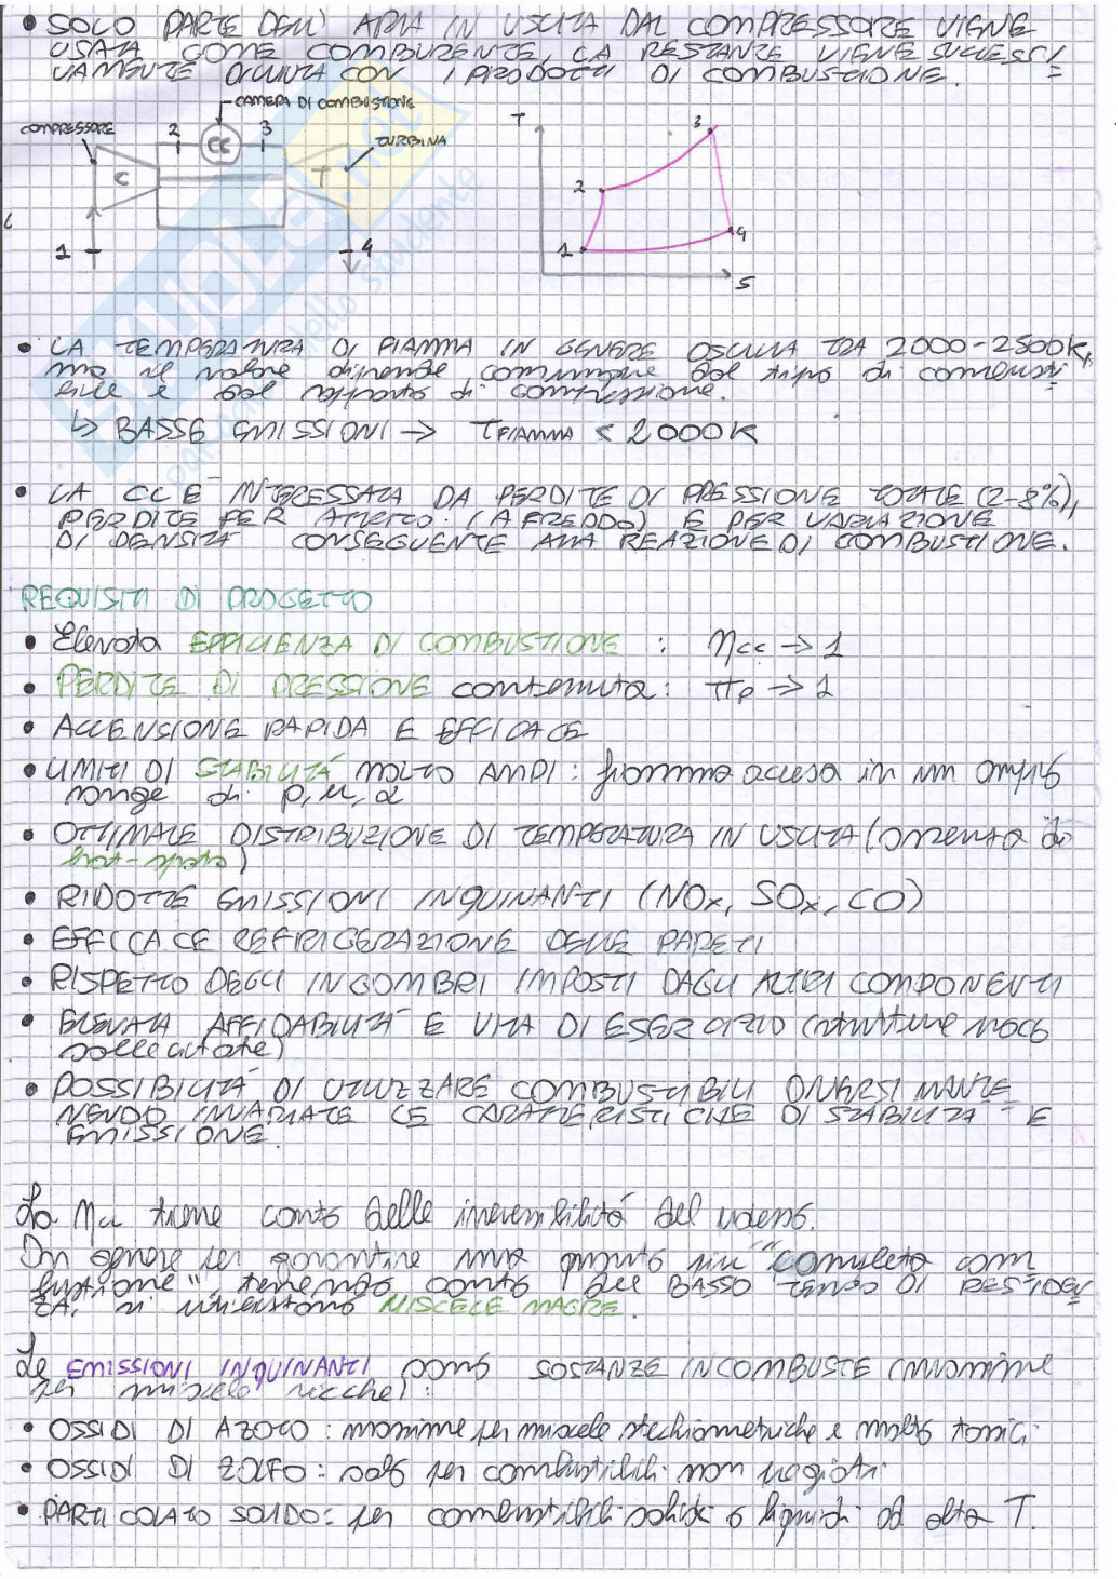 • SOLO PARTE DELL'ARIA IN USCITA DAL COMPRESSORE VIENE
USATA COME COMBURENTE, LA RESTANTE VIENE SUCCESSI
VAMENTE DILUITA CON I PRODOTTI DI COMBUSTIONE.
CAMERA DI COMBUSTIONE
COMPRESSORE 2 CC 3 TURBINA
C T
1 4
T 3
2
4
1
S
• LA TEMPERATURA DI FIAMMA IN GENERE OSCILLA TRA 2000-2500K,
ma il valore dipende comunque dal tipo di combusti
bile e dal rapporto di compressione.
↳ BASSE EMISSIONI → TFIAMMA < 2000K
• LA CC E' INTERESSATA DA PERDITE DI PRESSIONE TOTALE (2-8%),
PERDITE PER ATTRITO (A FREDDO) E PER VARIAZIONE
DI DENSITA' CONSEGUENTE ALLA REAZIONE DI COMBUSTIONE.
REQUISITI DI PROGETTO
• Elevata EFFICIENZA DI COMBUSTIONE : ηcc → 1
• PERDITE DI PRESSIONE contenuta: πp → 1
• ACCENSIONE RAPIDA E EFFICACE
• LIMITI DI STABILITÁ MOLTO AMPI : fiamma accesa in un ampio
range di p, u, α
• OTTIMALE DISTRIBUZIONE DI TEMPERATURA IN USCITA (assenza di
hot-spots)
• RIDOTTE EMISSIONI INQUINANTI (NOx, SOx, CO)
• EFFICACE REFRIGERAZIONE DELLE PARETI
• RISPETTO DEGLI INGOMBRI IMPOSTI DAGLI ALTRI COMPONENTI
• ELEVATA AFFIDABILITA' E VITA DI ESERCIZIO (strutture poco
sollecitate)
• POSSIBILITA' DI UTILIZZARE COMBUSTIBILI DIVERSI MANTE
NENDO INVARIATE LE CARATTERISTICHE DI STABILITA' E
EMISSIONE.
La ηcc tiene conto delle irreversibilitá del
In genere per garantire una quanto piu' "completa com
bustione", tenendo conto del BASSO TEMPO DI RESIDEN
ZA, si utilizzano MISCELE MAGRE.
Le EMISSIONI INQUINANTI sono SOSTANZE INCOMBUSTE (massime
per miscele ricche):
• OSSIDI DI AZOTO : massime per miscele stechiometriche e molto tossici
• OSSIDI DI ZOLFO : solo per combustibili non pregiati
• PARTICOLATO SOLIDO : per combustibili solidi o liquidi ad alta T.